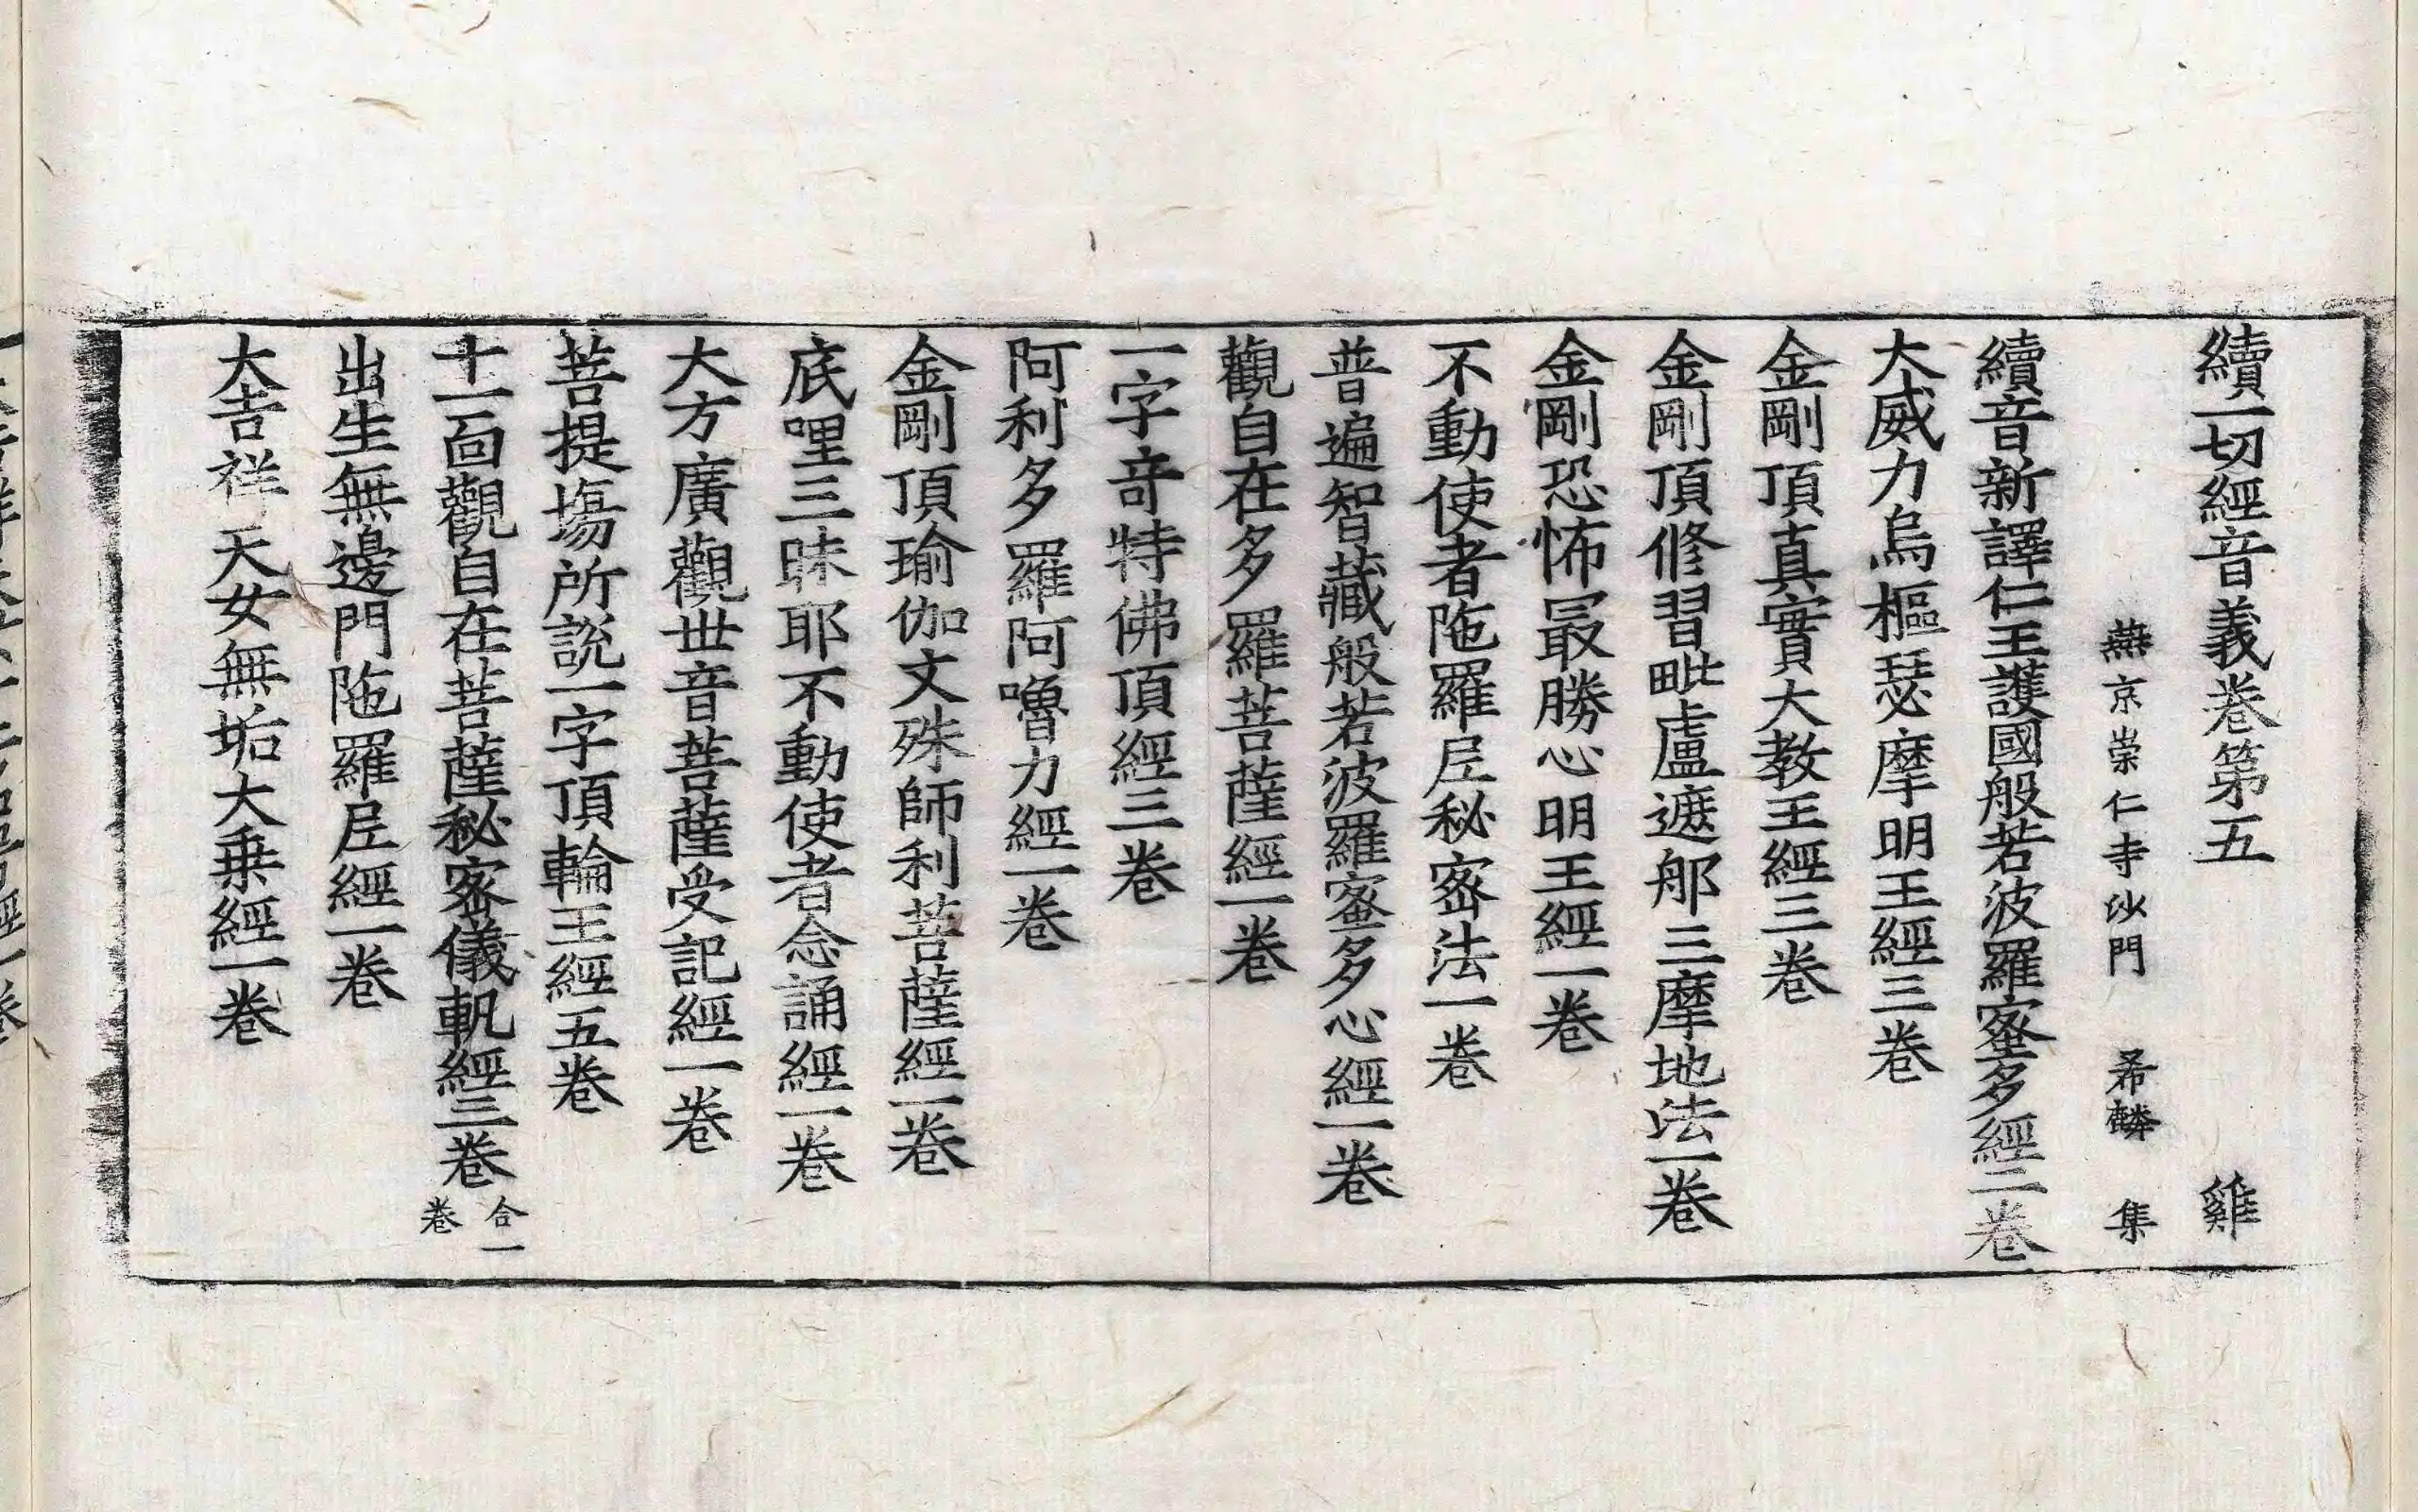 續一切經音義卷第五 雞
燕京崇仁寺沙門 希麟 集
續音新譯仁王護國般若波羅蜜多經二卷
大威力烏樞瑟摩明王經三卷
金剛頂真實大教王經三卷
金剛頂修習毗盧遮那三摩地法一卷
金剛恐怖冣勝心明王經一卷
不動使者陁羅尼秘密法一卷
普遍智藏般若波羅蜜多心經一卷
觀自在多羅菩薩經一卷
一字竒特佛頂經三卷
阿利多羅阿嚕力經一卷
金剛頂瑜伽文殊師利菩薩經一卷
底哩三昧耶不動使者念誦經一卷
大方廣觀世音菩薩受記經一卷
菩提場所說一字頂輪王經五卷
十一面觀自在菩薩秘密儀軌經三卷 合一卷
出生無邊門陁羅尼經一卷
大吉祥天女無垢大乗經一卷